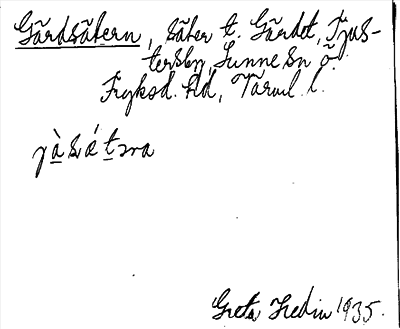 Gårdsätern, säter t. Gårdet, Tjus-
tersby, Sunne sn ö.
Fryksd. hd, Värml. l.
Greta Hedin 1935.